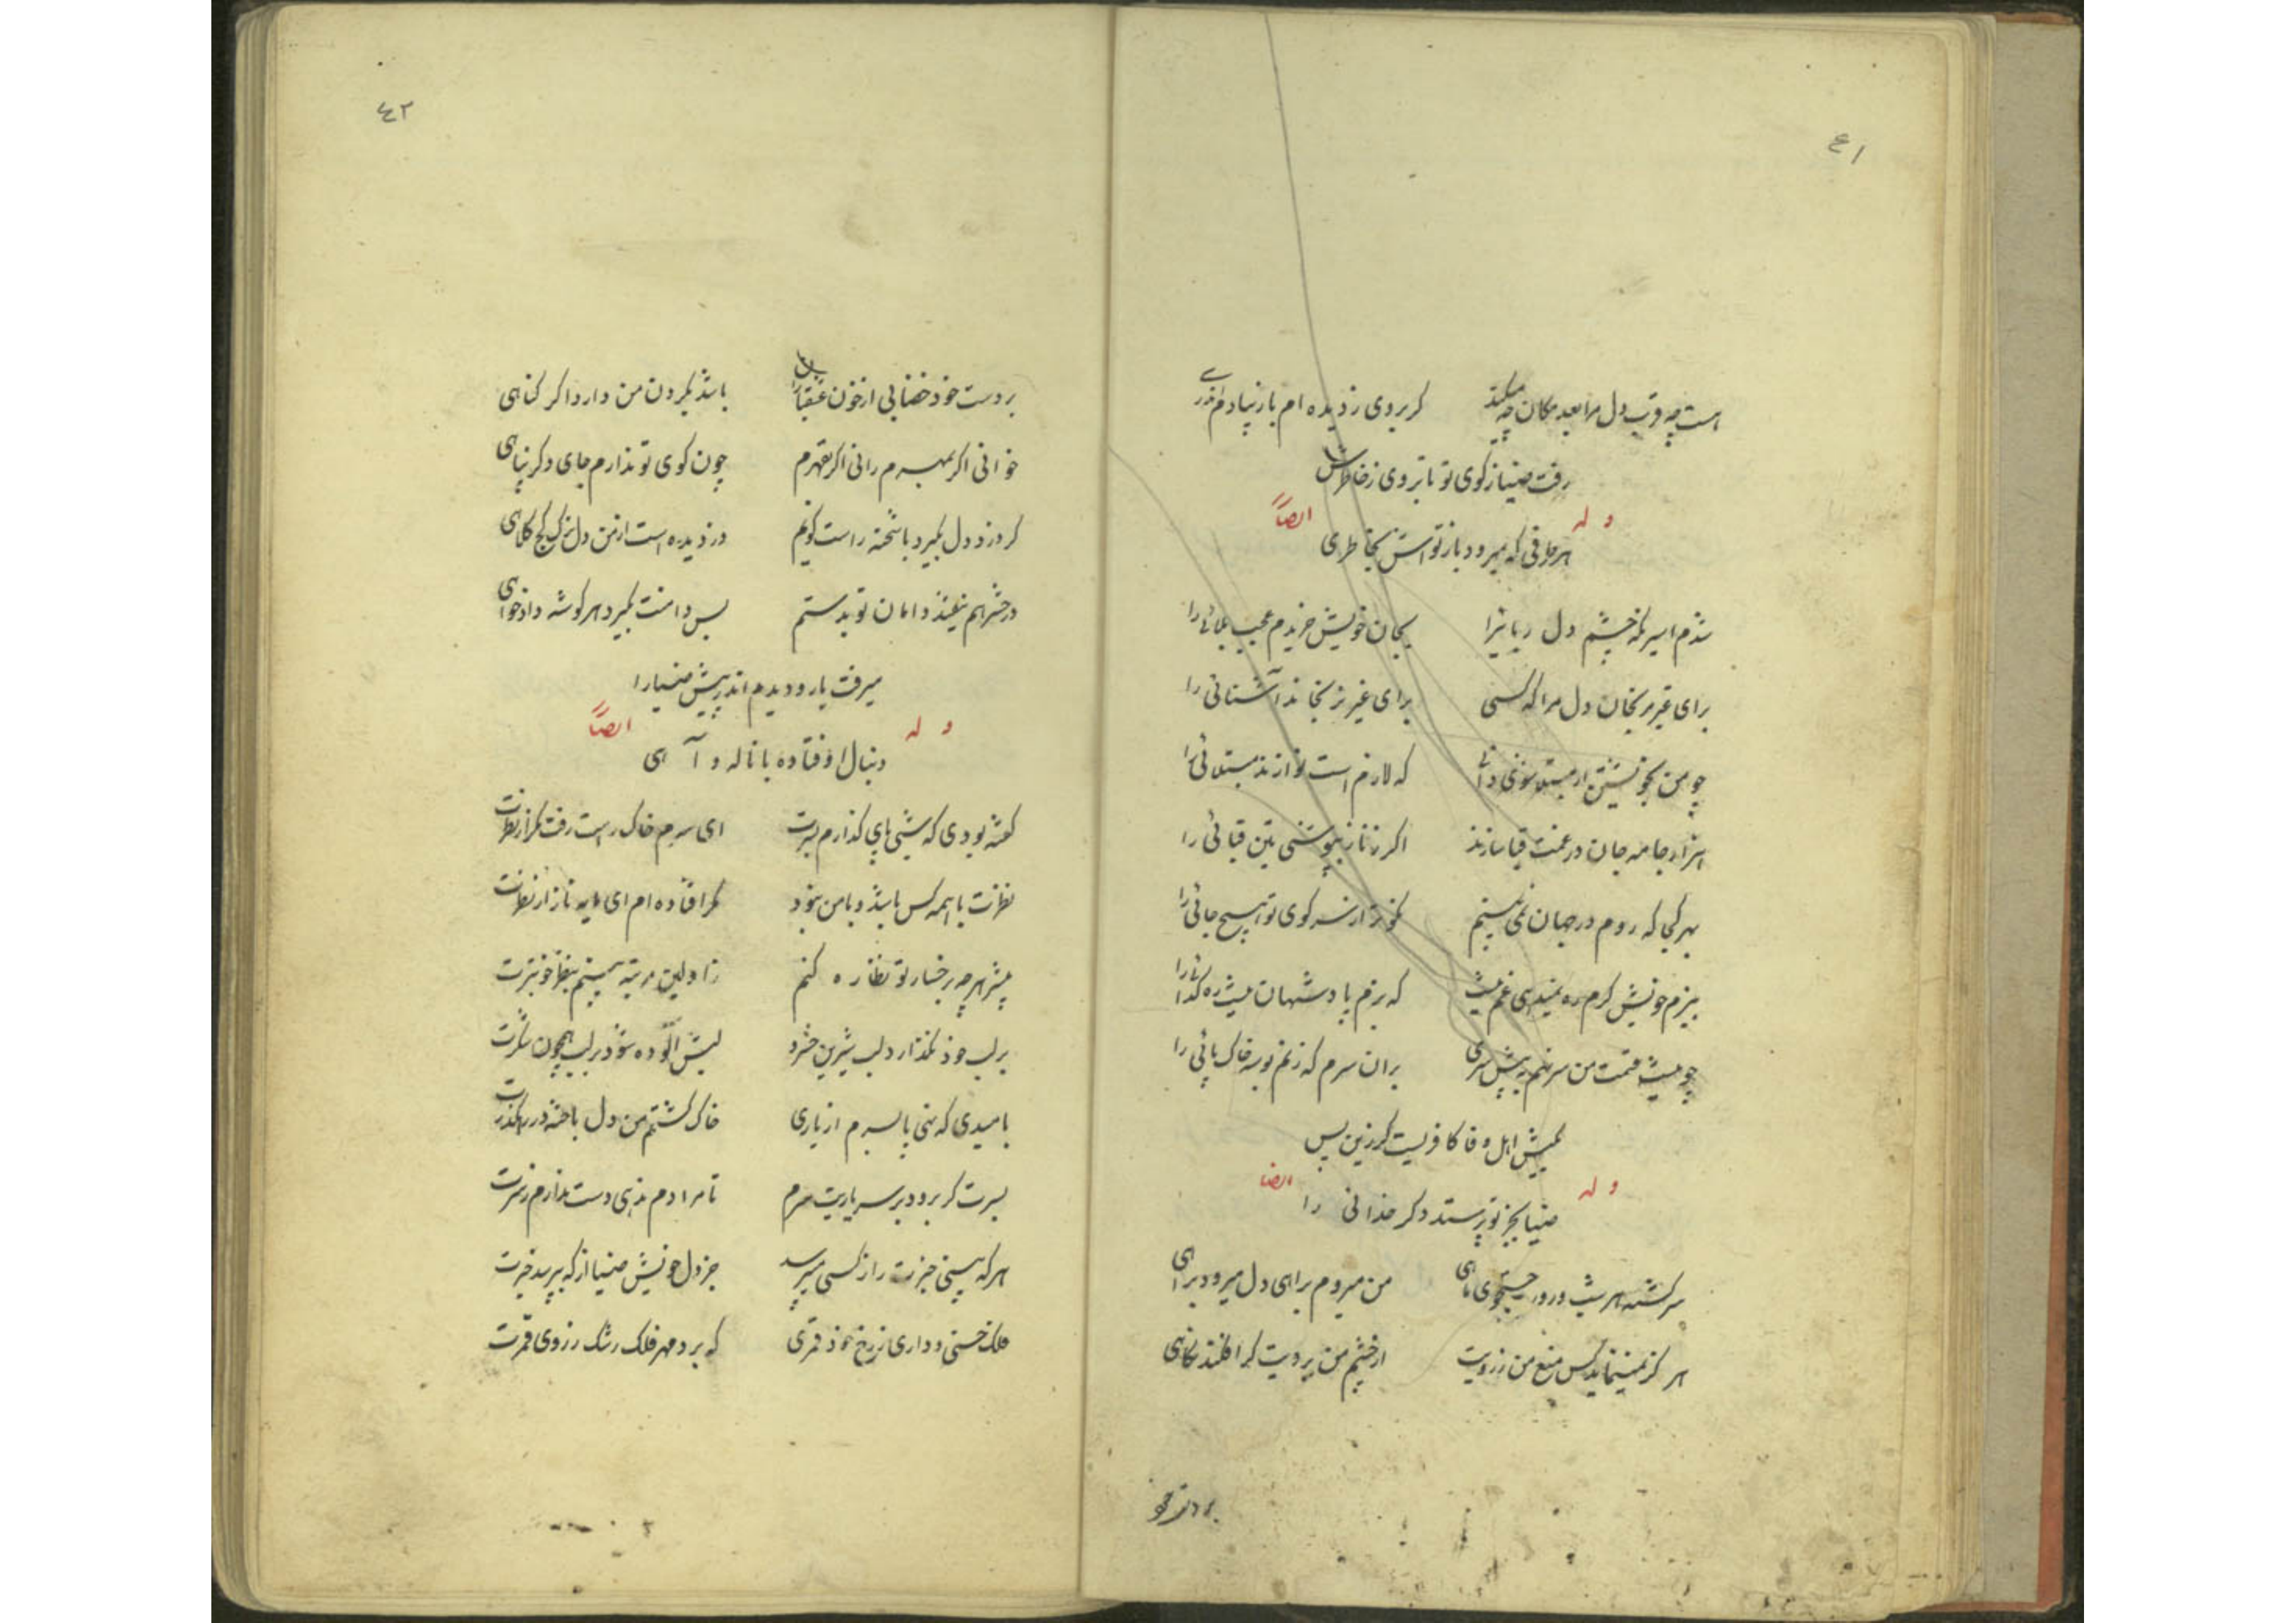 ٤١
است چه قرب دل مرا بعد مکان چه میکند    گر بروی ز دیده ام باز بیاد
رفت ضیا ز کوی تو تا بروی ز خاطرش
وله ایضاً
هر طرفی که میرود باز تو اش بخاطری
شدم اسیر نگه چشم دل ربائیرا    بجان خویش خریدم عجب بلائی را
برای غیر مرنجان دل مرا که کسی    برای غیر نرنجاند آشنائی را
چو من بجو    که لازم است نوازند مبتلائی را
هزار جامه جان در غمت قبا سازند    اگر ز ناز بپوشی بتن قبائی را
بهر کجا که روم در جهان نمی بینم    نکوتر از سر کوی تو هیچ جائی را
ببزم خویش گرم ره نمیدهی غم نیست    که بزم پادشهان نیست ره گدائی را
چو نیست قسمت من سر نهم به پیش سری    بران سرم که زنم بوسه خاک پائی را
بکیش اهل وفا کافریست گر زین پس
وله ایضا
ضیا بجز تو پرستد دگر خدائی را
سرگشته هر شب و روز در جستجوی ماهی    من میروم براهی دل میرود براهی
هرگز نمینماید کس منع من ز رویت    از چشم من برویت گر افکند نگاهی
بر دست خود
٤٢
بر دست خود خضابی از خون عشقبازان    باشد بگردن من دارد اگر گناهی
خوانی اگر بمهرم رانی اگر بقهرم    چون کوی تو ندارم جای دگر پناهی
گر دزد دل بگیرد با شحنه راست گویم    دزدیده است از من دل ترک کج کلاهی
در حشر هم نیفتد دامان تو بدستم    بس دامنت بگیرد هر گوشه دادخواهی
میرفت یار و دیدم اندر پیش ضیا را
وله ایضاً
دنبال او فتاده با ناله و آهی
گفته بودی که شبی پای گذارم بسرت    ای سرم خاک رهت رفت مگر از نظرت
نظرت با همه کس باشد و با من نبود    مگر افتاده ام ای مایه ناز از نظرت
بیشتر هر چه برخسار تو نظاره کنم    ز اولین مرتبه بینم بنظر خوبترت
بر لب خود نگذارد لب شیرین خسرو    لبش آلوده شود بر لب همچون شکرت
بامیدی که نهی پا بسرم از یاری    خاک گشتم من دل باخته در رهگذرت
بسرت گر برود بر سر یاریت سرم    تا مرادم ندهی دست ندارم ز سرت
هر که بینی خبرت را ز کسی میپرسد    جز دل خویش ضیا از که بپرسد خبرت
ملک حسنی و داری ز رخ خود قمری    که برد مهر فلک رشک ز روی قمرت